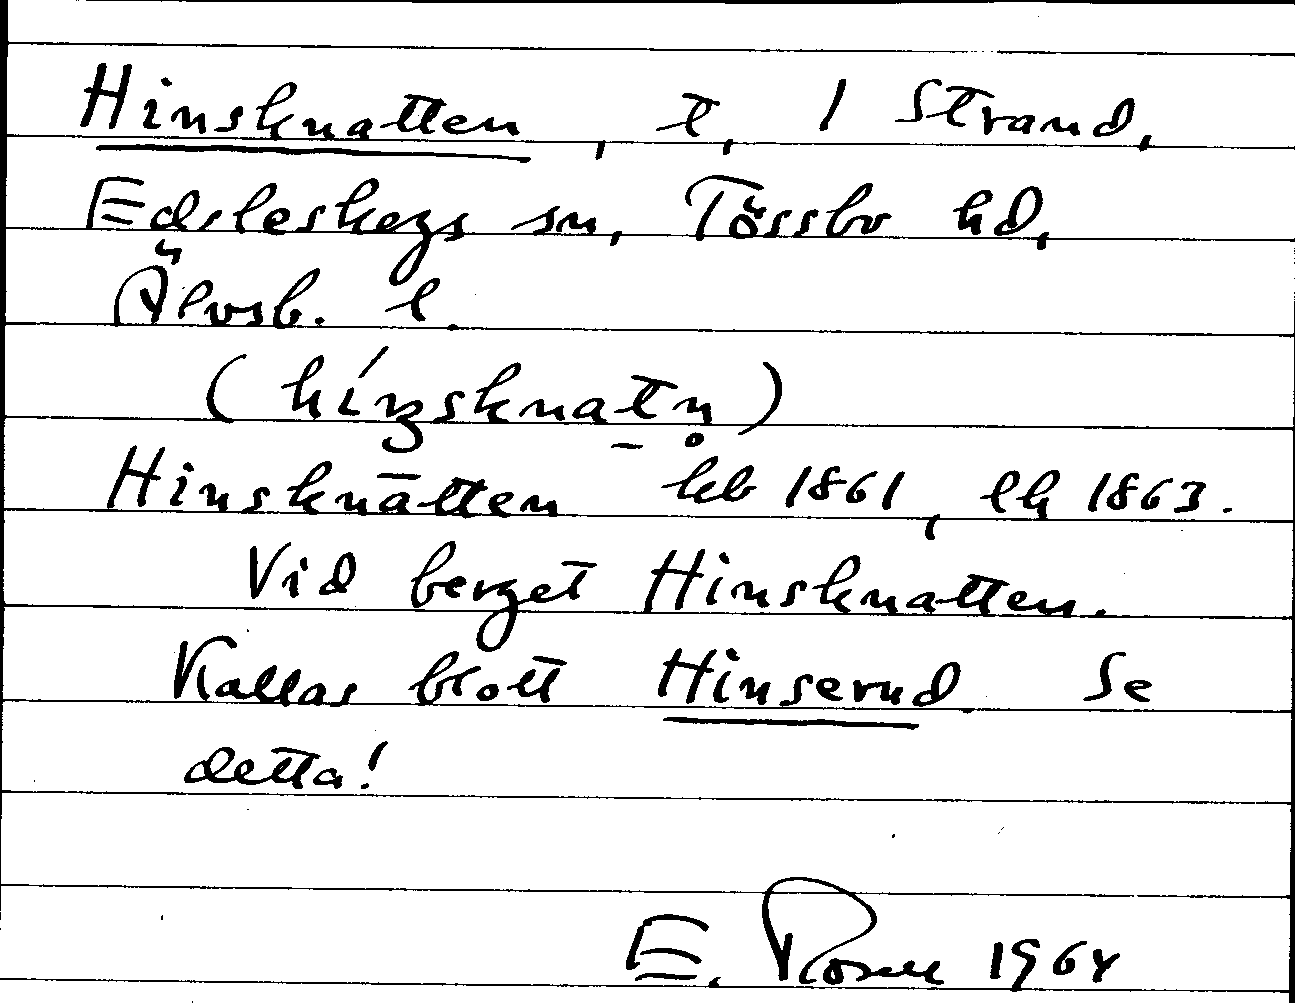 Hinsknatten, t, 1 Strand,
Edsleskogs sn, Tössbo hd,
Älvsb. l.
(hínsknatn̥)
Hinsknätten hb 1861, lk 1863.
Vid berget Hinsknatten.
Kallas blott Hinserud. Se
detta!
E. 1964